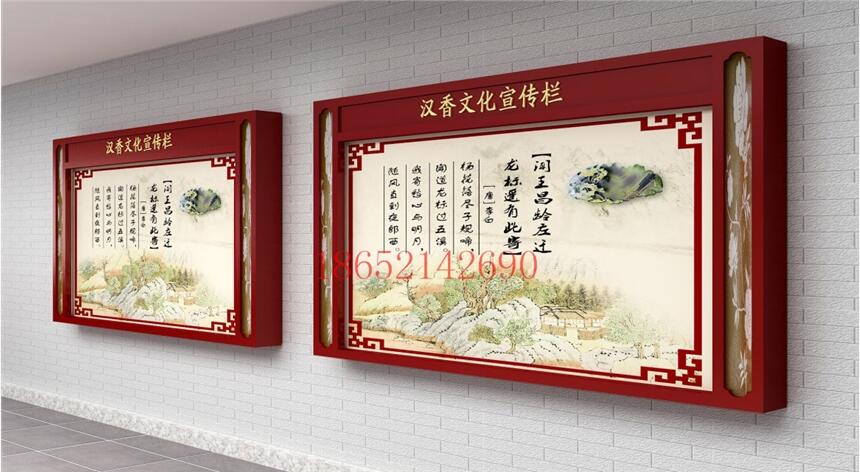 汉香文化宣传栏
【闻王昌龄左迁
龙标遥有此寄】
[唐]李白
杨花落尽子规啼，
闻道龙标过五溪。
我寄愁心与明月，
随风直到夜郎西。
汉香文化宣传栏
【闻王昌龄左迁
龙标遥有此寄】
[唐]李白
杨花落尽子规啼，
闻道龙标过五溪。
我寄愁心与明月，
随风直到夜郎西。
18652142690